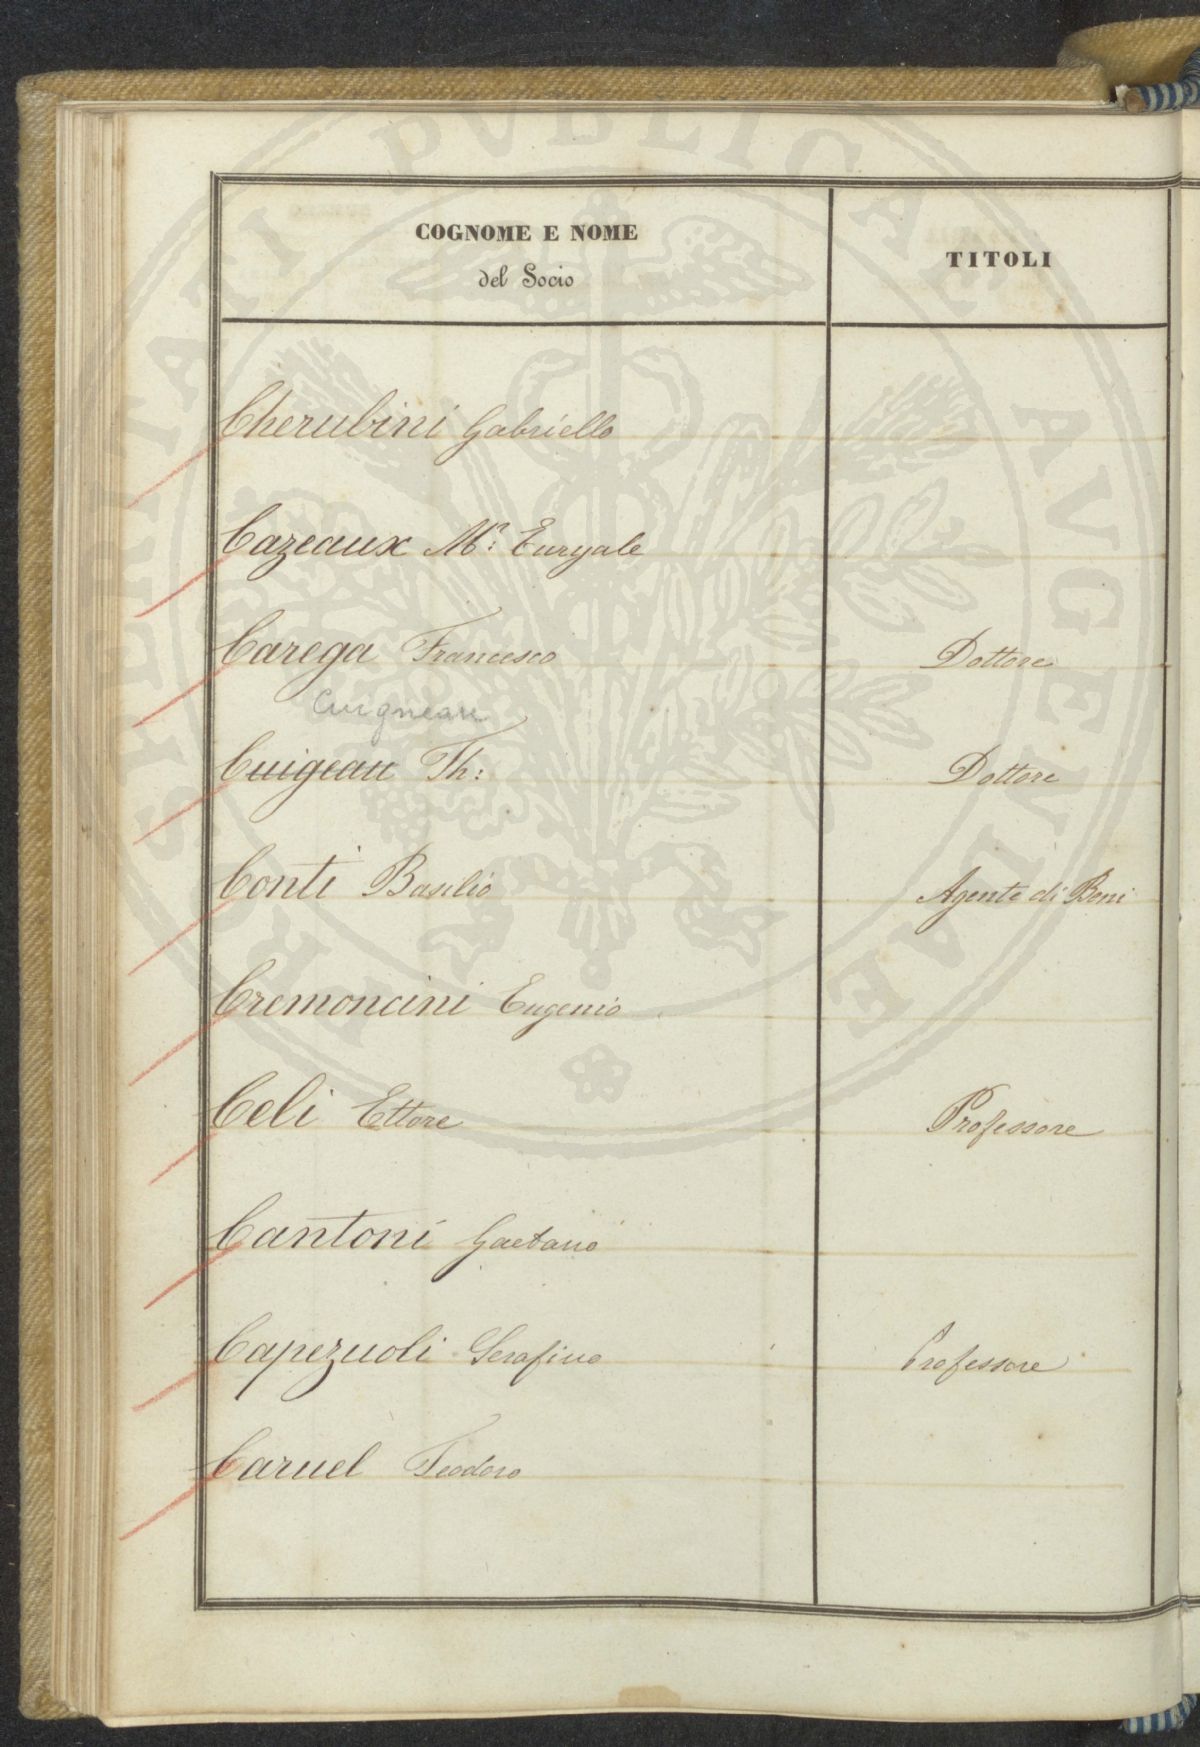 PROSPERITATI PVBLICAE AVGENDAE
COGNOME E NOME
del Socio
TITOLI
Cherubini Gabriello
Cazeaux Mr. Euryale
Carega Francesco
Dottore
Cuigneau
Cuigeau Th:
Dottore
Conti Basilio
Agente di Beni
Cremoncini Eugenio
Celi Ettore
Professore
Cantoni Gaetano
Capezuoli Serafino
Professore
Caruel Teodoro